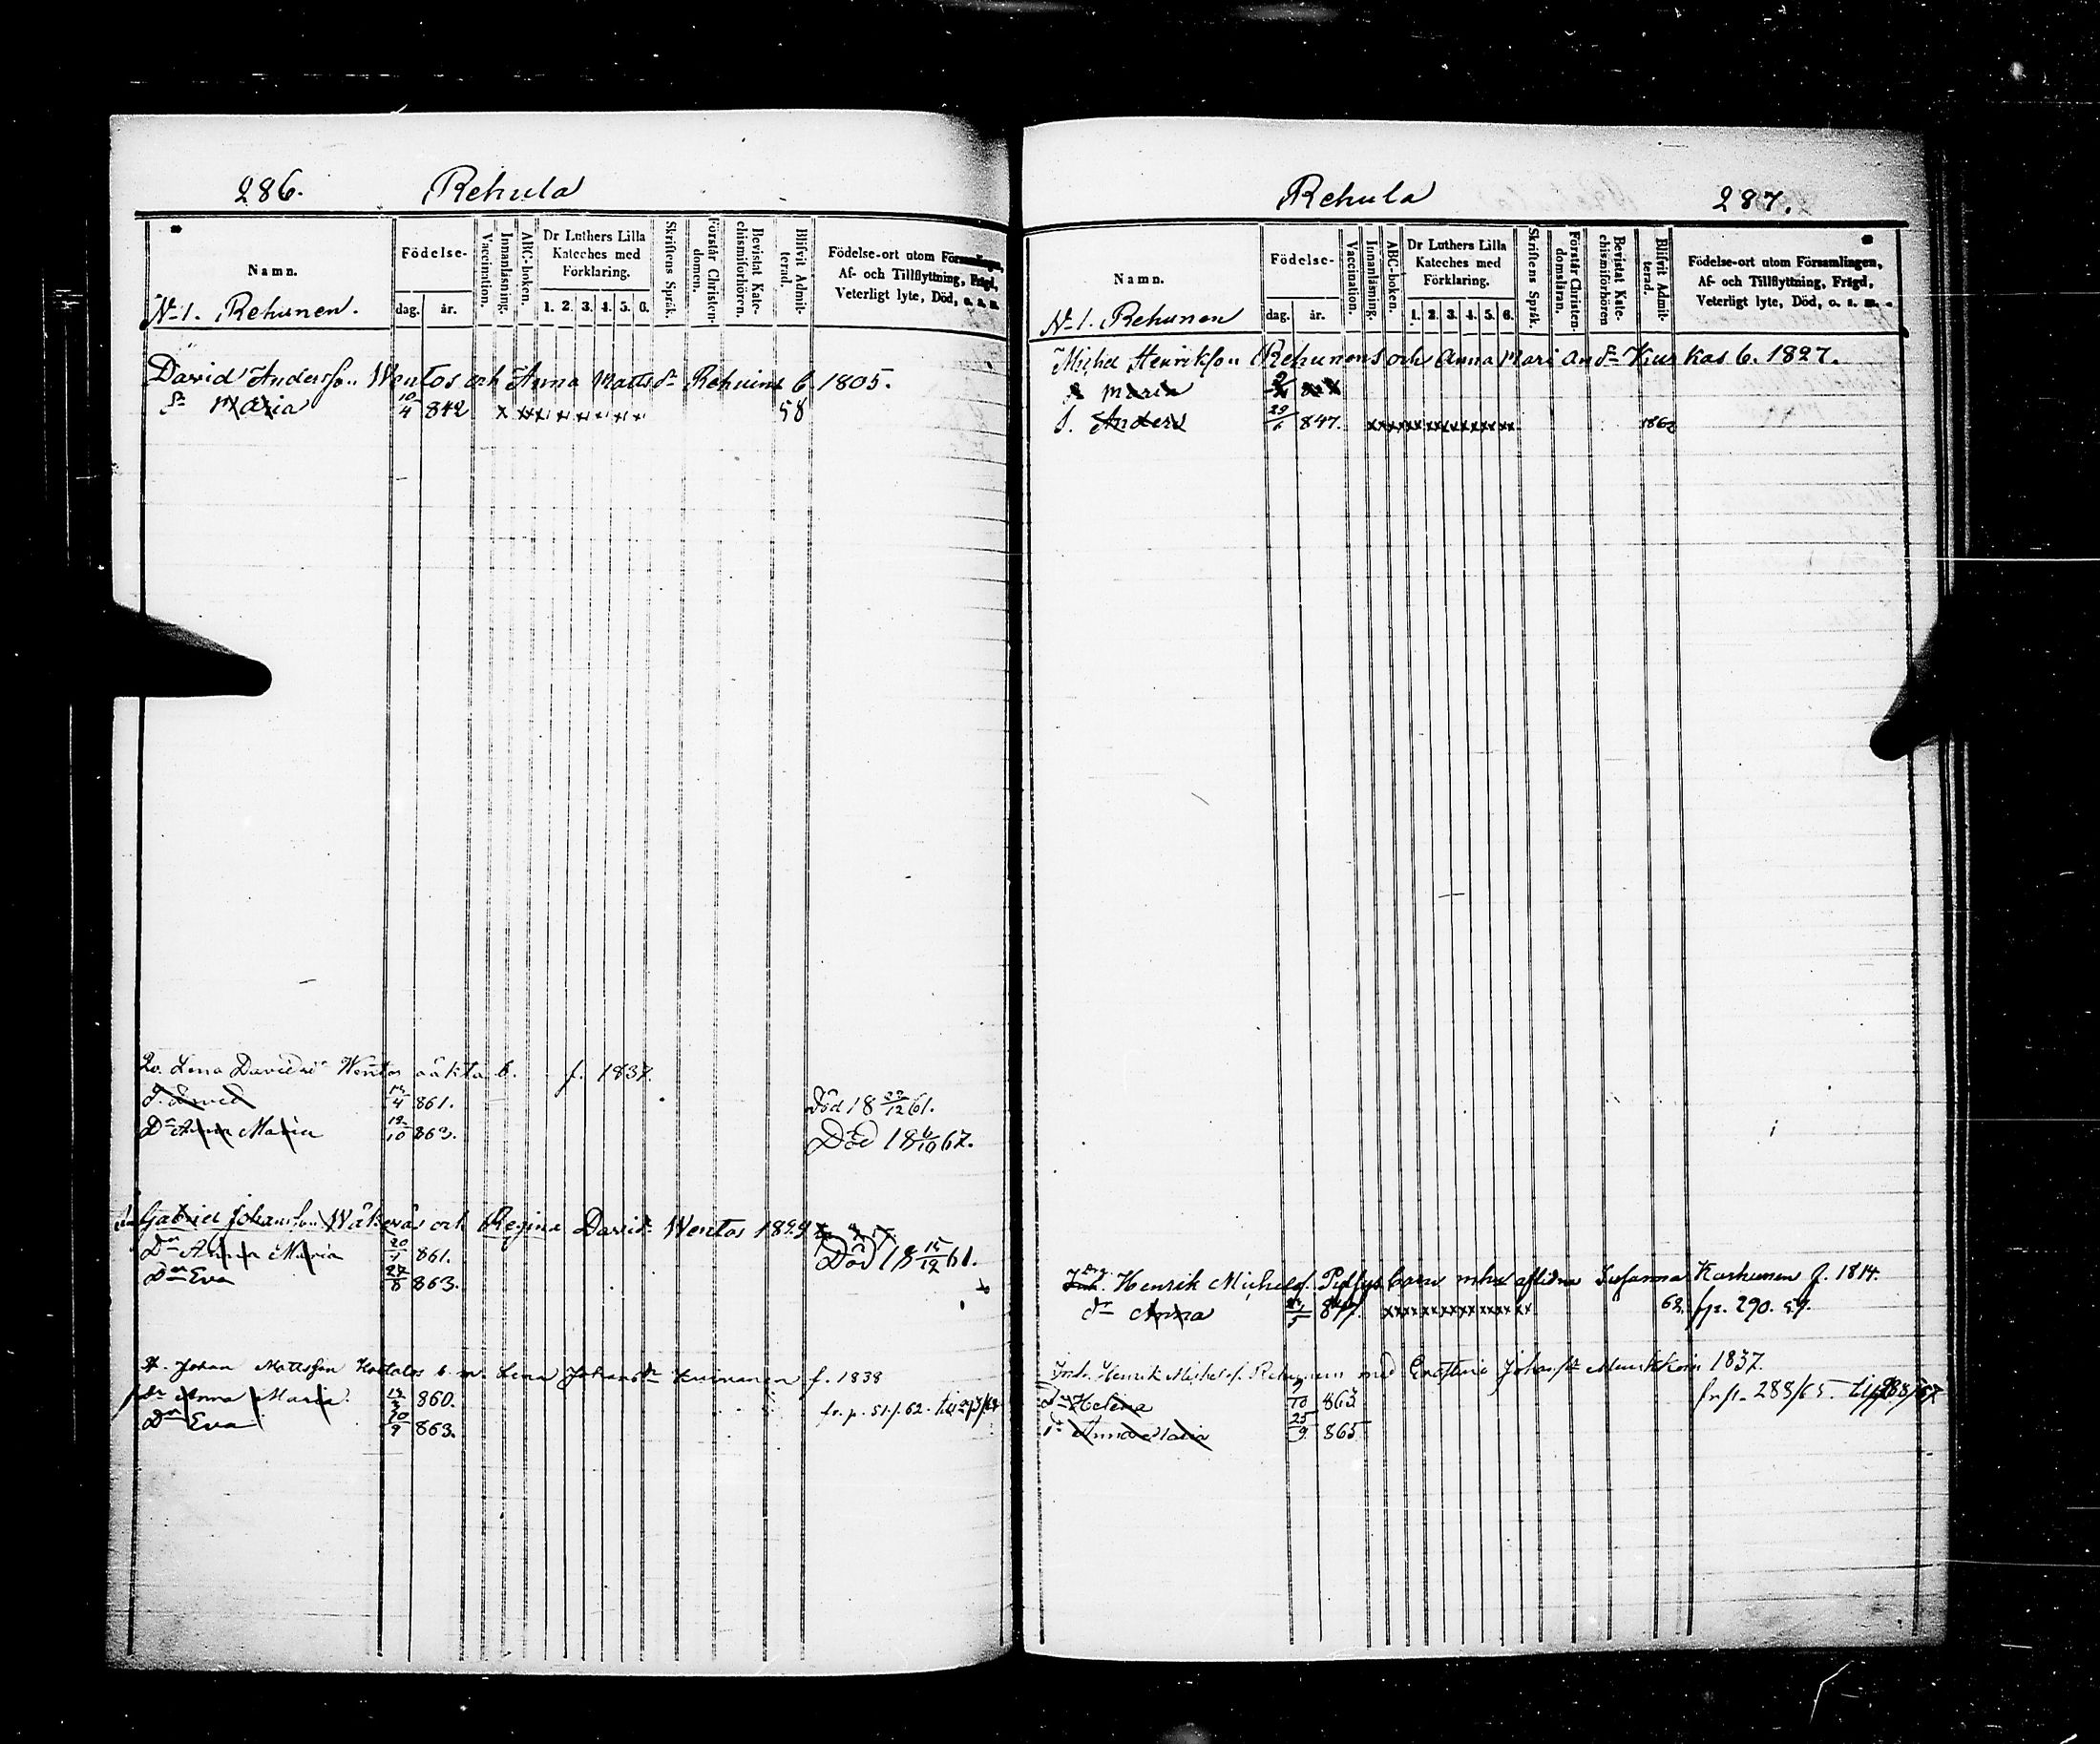 286. Rehula
Namn.
Födelse-
dag. år.
Vaccination.
Innanläsning.
ABC-boken.
Dr Luthers Lilla
Kateches med
Förklaring.
1. 2. 3. 4. 5. 6.
Skriftens Språk.
Förstår Christen-
domen.
Bevistat Kate-
chismiförhören.
Blifvit Admit-
terad.
Födelse-ort utom Församlingen,
Af- och Tillflyttning, Frägd,
Veterligt lyte, Död, o. s. m.
N-1. Rehunen.
David Andersson Wentos och Anna Matts dr b. 1805.
dr Maria 10/4 842 x xxx x x x x x x 58
Qv. Lena Davids dr Wentos oäkta b. f. 1837.
/4 861. Död 18 /12 61.
Dr Anna Maria /10 863. Död 18 6/10 67.
Gabriel Johansson och Regina Davids Wentos
Dr Anna Maria 20/ 861. Död 18 15/12 61.
Dr Eva 27/8 863.
Johan Mattsson b. m. Lena Johans dr f. 1838
dr Anna Maria 860. fr. p. 51/62.
Dr Eva /9 863.
Rehula 287.
Namn.
Födelse-
dag. år.
Vaccination.
Innanläsning.
ABC-boken.
Dr Luthers Lilla
Kateches med
Förklaring.
1. 2. 3. 4. 5. 6.
Skriftens Språk.
Förstår Christen-
domsläran.
Bevistat Kate-
chismiförhören
Blifvit Admit-
terad.
Födelse-ort utom Församlingen,
Af- och Tillflyttning, Frägd,
Veterligt lyte, Död, o. s. m.
N-1. Rehunen
Michel Henriksson Rehunens och Anna Mari And dr Kurkas b. 1827.
Maria
S. Anders 29/ 847. xxxxxxxxxxxxx
Henrik Michels. barn mhu aflidna Susanna Karhunen f. 1814.
dr Anna 847. xxxxxxxxxxxxx 62. fp. 290. 59.
Inh. Henrik Michels. Rehunen med Johans dr 1837.
dr Helena /10 863 fr p. 288/65.
dr Anna Maria 25/9 865